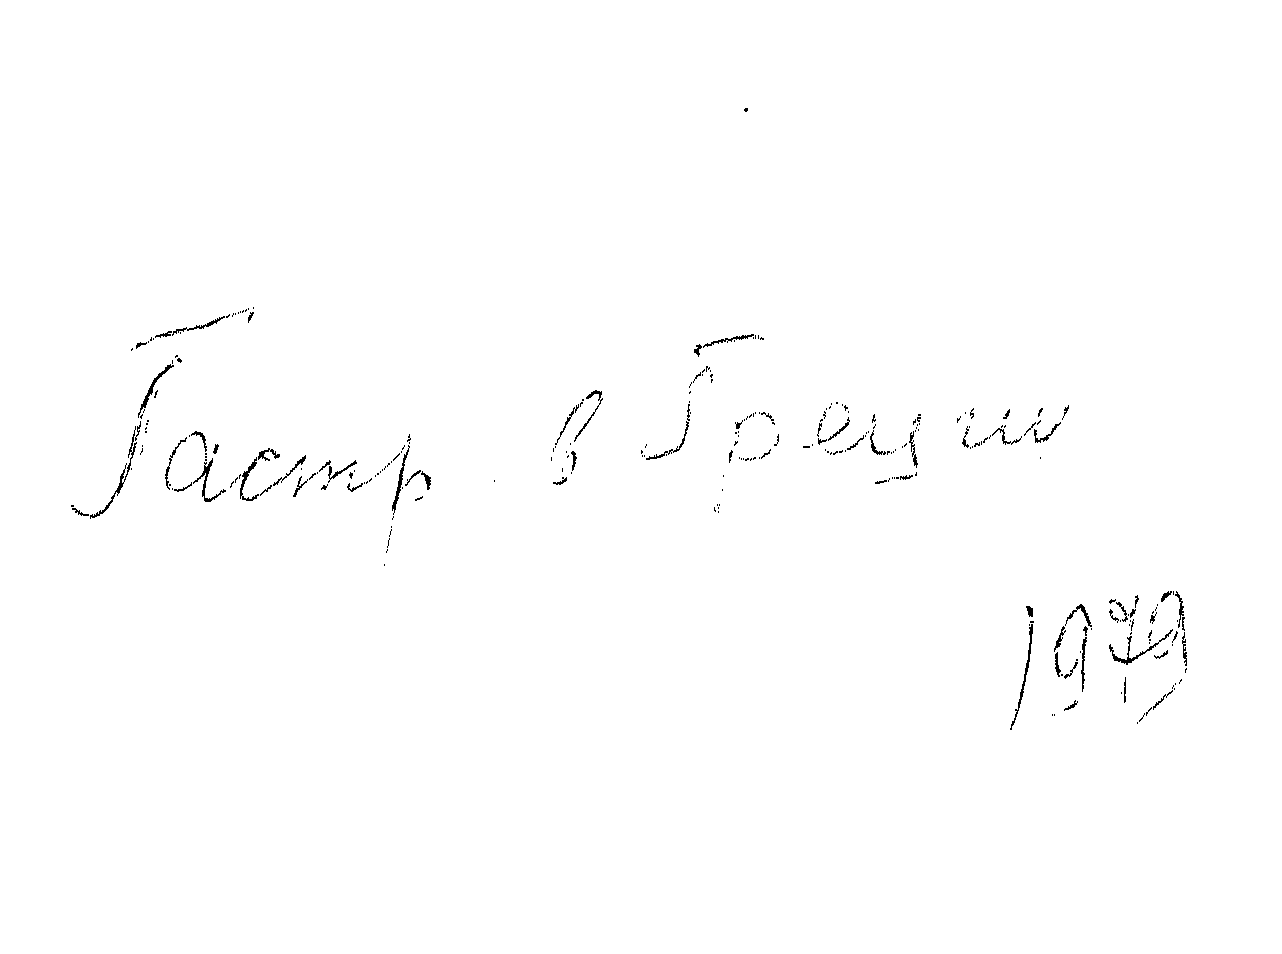 Гастр. в Греции
1979